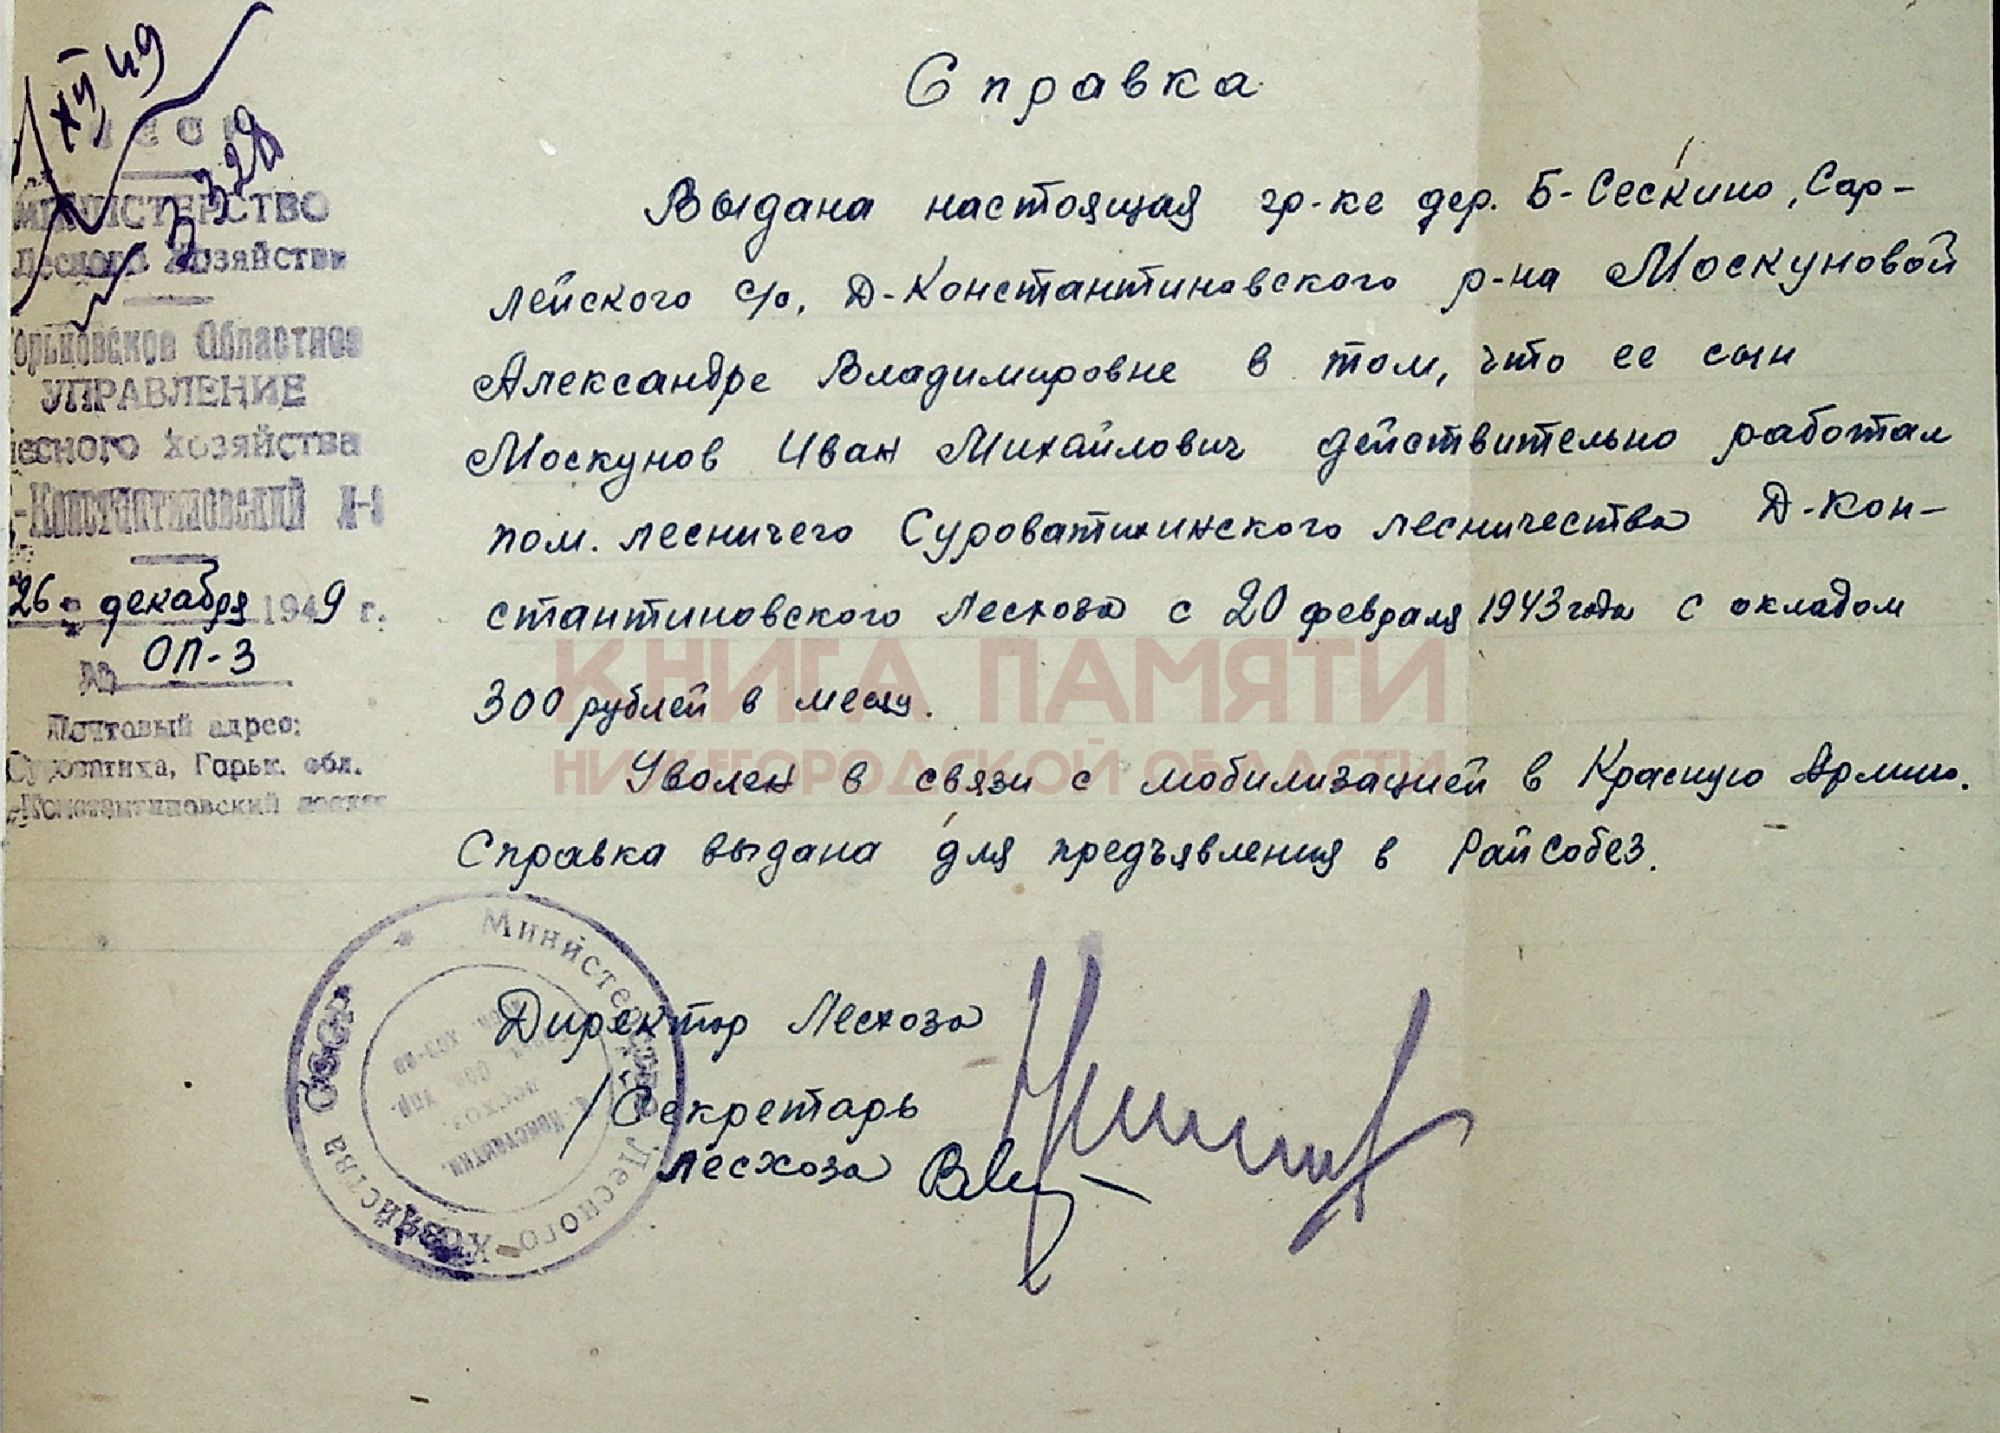 XII 49
3328
СССР
МИНИСТЕРСТВО
Лесного Хозяйства
Горьковское Областное
УПРАВЛЕНИЕ
лесного хозяйства
Д-Константиновский л-з
26 декабря 1949 г.
№ ОП-3
Почтовый адрес:
Суроватиха, Горьк. обл.
Д-Константиновский лесхоз
Справка
Выдана настоящая гр-ке дер. Б-Сескино, Сар-
лейского с/с, Д-Константиновского р-на Москуновой
Александре Владимировне в том, что ее сын
Москунов Иван Михайлович действительно работал
пом. лесничего Суроватихинского лесничества Д-Кон-
стантиновского Лесхоза с 20 февраля 1943 года с окладом
300 рублей в месяц.
Уволен в связи с мобилизацией в Красную Армию.
Справка выдана для предъявления в Райсобез.
Директор Лесхоза
/Секретарь
лесхоза
Министерство Лесного Хозяйства СССР
КНИГА ПАМЯТИ
НИЖЕГОРОДСКОЙ ОБЛАСТИ